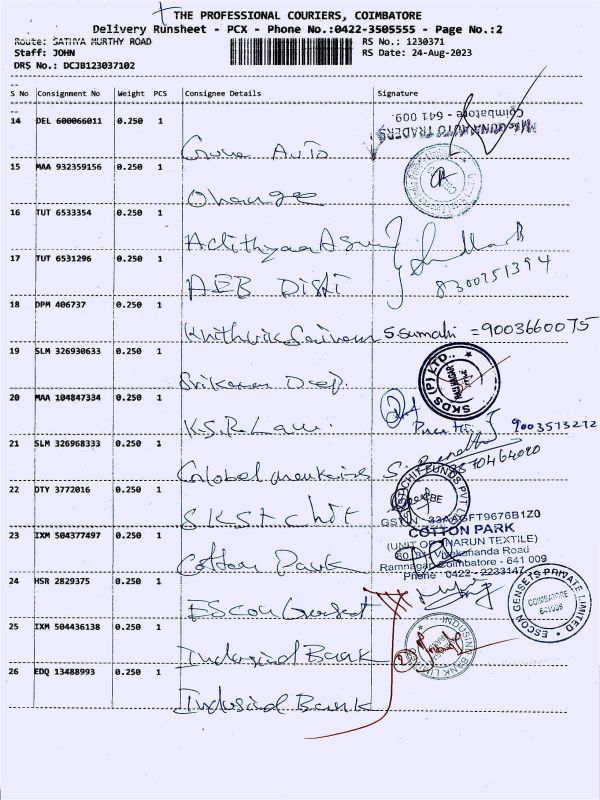 THE PROFESSIONAL COURIERS, COIMBATORE
Delivery Runsheet - PCX - Phone No.:0422-3505555 - Page No.:2
Route: SATHYA MURTHY ROAD RS No.: 1230371
Staff: JOHN RS Date: 24-Aug-2023
DRS No.: DCJB123037102
S No Consignment No Weight PCS Consignee Details Signature
14 DEL 600066011 0.250 1
Coimbatore - 641 009.
AUTO TRADERS
Guna Auto
15 MAA 932359156 0.250 1
Orange
16 TUT 6533354 0.250 1
Adithyaa
17 TUT 6531296 0.250 1
8300751394
AEB Dishi
18 DPM 406737 0.250 1
S Sumathi = 9003660075
19 SLM 326930633 0.250 1
SKDS (P) LTD.,
20 MAA 104847334 0.250 1
K.S.R. Law
9003513272
21 SLM 326968333 0.250 1
Global
22 DTY 3772016 0.250 1
CHIT FUNDS PVT LTD
CBE
S K S T Chit
GSTIN 33AAGFT9676B1Z0
COTTON PARK
23 IXM 504377497 0.250 1
(UNIT OF THARUN TEXTILE)
Vivekananda Road
Ramnagar, Coimbatore - 641 009
Phone : 0422 - 2233147
Cotton Park
24 HSR 2829375 0.250 1
ESCON GENSETS PRIVATE LIMITED
COIMBATORE
641009
Escon Genset
25 IXM 504436138 0.250 1
INDUSIND BANK LTD
Indusind Bank
26 EDQ 13488993 0.250 1
Indusind Bank